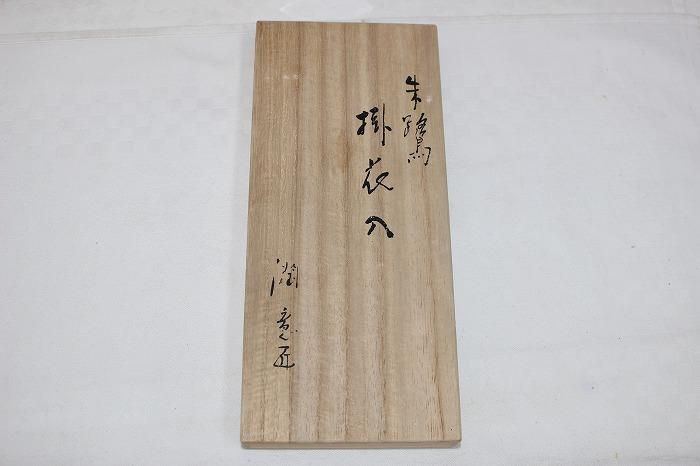 朱鷺
掛花入
潤意匠